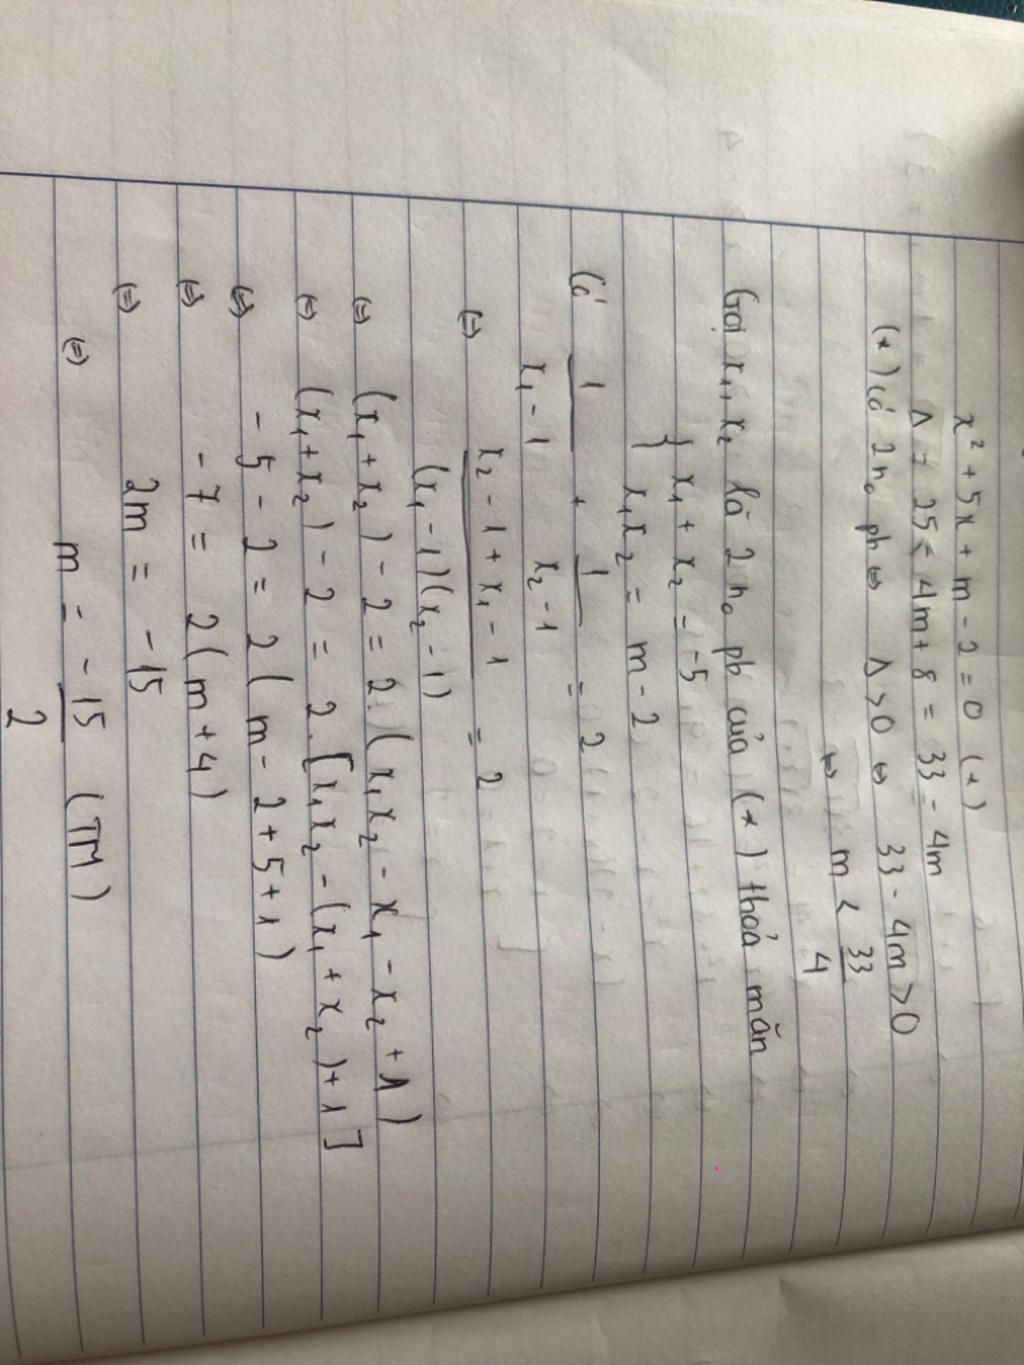 x² + 5x + m - 2 = 0 (*)
Δ = 25 - 4m + 8 = 33 - 4m
(*) có 2 no pb ⇔ Δ > 0 ⇔ 33 - 4m > 0
⇔ m < 33/4
Gọi x₁, x₂ là 2 no pb của (*) thoả mãn
{ x₁ + x₂ = -5
x₁x₂ = m - 2
Có 1/(x₁ - 1) + 1/(x₂ - 1) = 2
⇔ (x₂ - 1 + x₁ - 1)/((x₁ - 1)(x₂ - 1)) = 2
⇔ (x₁ + x₂) - 2 = 2.(x₁x₂ - x₁ - x₂ + 1)
⇔ (x₁ + x₂) - 2 = 2.[x₁x₂ - (x₁ + x₂) + 1]
⇔ - 5 - 2 = 2(m - 2 + 5 + 1)
⇔ - 7 = 2(m + 4)
⇔ 2m = -15
⇔ m = -15/2 (TM)